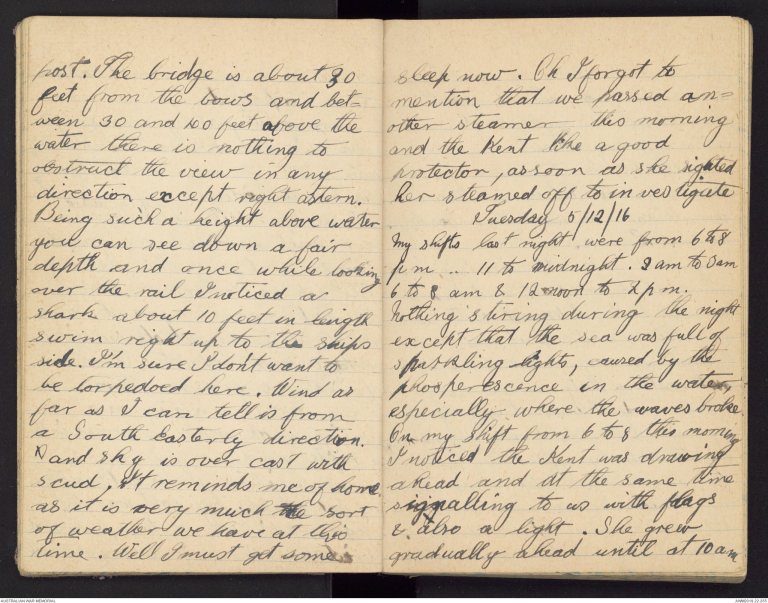 post. The bridge is about 30
feet from the bows and bet-
ween 30 and 40 feet above the
water there is nothing to
obstruct the view in any
direction except right astern.
Being such a height above water
you can see down a fair
depth and once while looking
over the rail I noticed a
shark about 10 feet in length
swim right up to the ships
side. I'm sure I don't want to
be torpedoed here. Wind as
far as I can tell is from
a South Easterly direction.
and sky is over cast with
scud. It reminds me of home
as it is very much the sort
of weather we have at this
time. Well I must get some
sleep now. Oh I forgot to
mention that we passed an=
other steamer this morning
and the Kent like a good
protector, as soon as she sighted
her steamed off to investigate
Tuesday 5/12/16
My shifts last night were from 6 to 8
pm .. 11 to midnight. 3 am to 5am
6 to 8 am & 12 noon to 2 pm.
Nothing stiring during the night
except that the sea was full of
sparkling lights, caused by the
phosperescence in the water,
especially where the waves broke.
On my shift from 6 to 8 this morning
I noticed the Kent was drawing
ahead and at the same time
signalling to us with flags
& also a light. She grew
gradually ahead until at 10 am
AUSTRALIAN WAR MEMORIAL